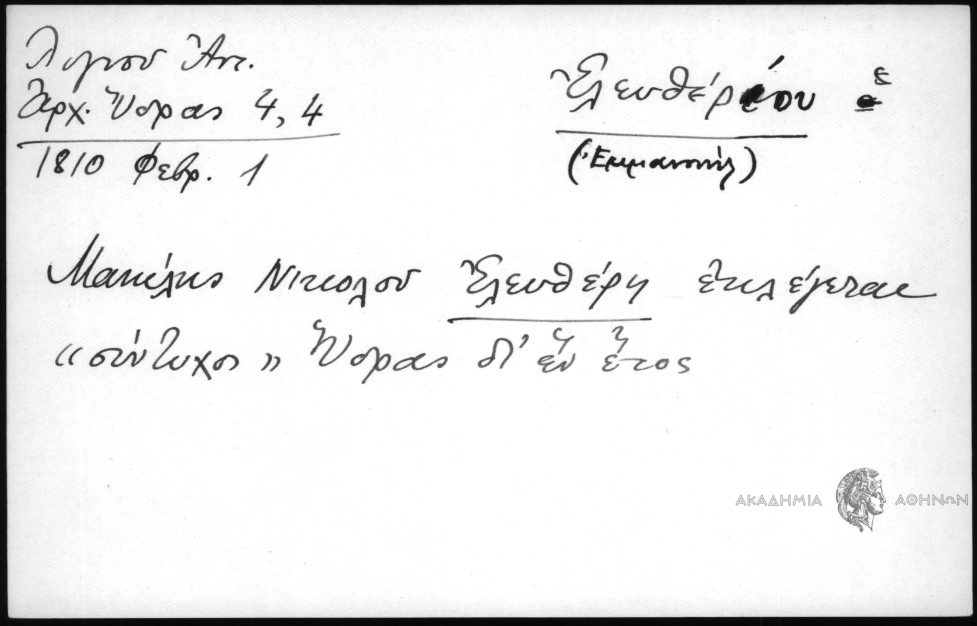 Λιγνοῦ Ἀντ.
Ἀρχ. Ὕδρας 4, 4
1810 Φεβρ. 1
Ἐλευθερίου ε
(Ἐμμανουήλ)
Μανώλης Νικολοῦ Ἐλευθέρη ἐκλέγεται
«σύντυχος» Ὕδρας δι' ἓν ἔτος
ΑΚΑΔΗΜΙΑ ΑΘΗΝΩΝ